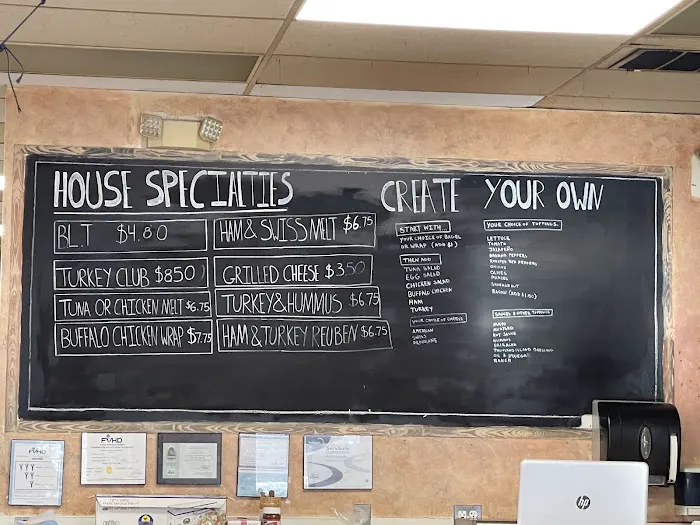 HOUSE SPECIALTIES
B.L.T $4.80
HAM & SWISS MELT $6.75
TURKEY CLUB $8.50
GRILLED CHEESE $3.50
TUNA OR CHICKEN MELT $6.75
TURKEY & HUMMUS $6.75
BUFFALO CHICKEN WRAP $7.75
HAM & TURKEY REUBEN $6.75
CREATE YOUR OWN
START WITH...
YOUR CHOICE OF BAGEL
OR WRAP (ADD $1)
THEN ADD
TUNA SALAD
EGG SALAD
CHICKEN SALAD
BUFFALO CHICKEN
HAM
TURKEY
YOUR CHOICE OF CHEESE
AMERICAN
SWISS
YOUR CHOICE OF TOPPINGS
LETTUCE
TOMATO
JALAPEÑO
BANANA PEPPERS
ROASTED RED PEPPERS
ONIONS
OLIVES
PICKLES
SAUERKRAUT
BACON (ADD $1.50)
MAYO
MUSTARD
HOT SAUCE
HUMMUS
SRIRACHA
THOUSAND ISLAND DRESSING
OIL & VINEGAR
RANCH
FVHD
FVHD
hp